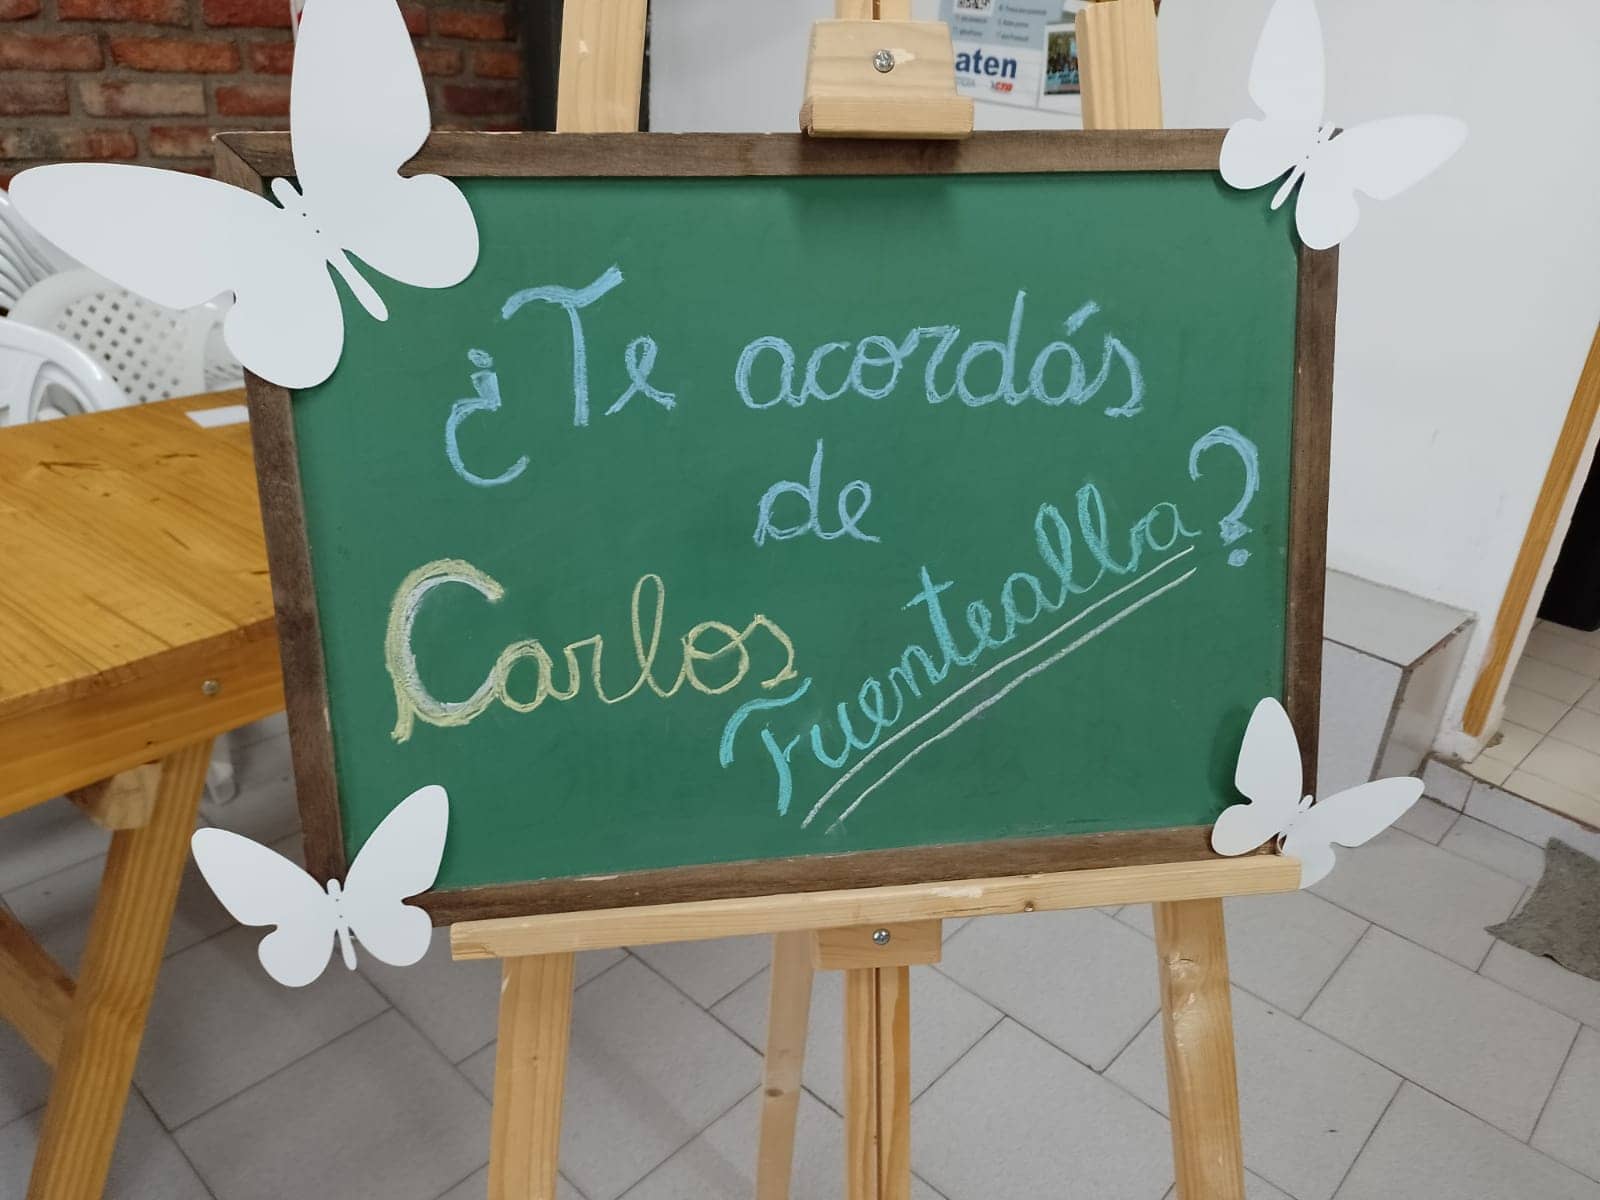 aten
CTA
¿Te acordás
de
Carlos
Fuentealba?